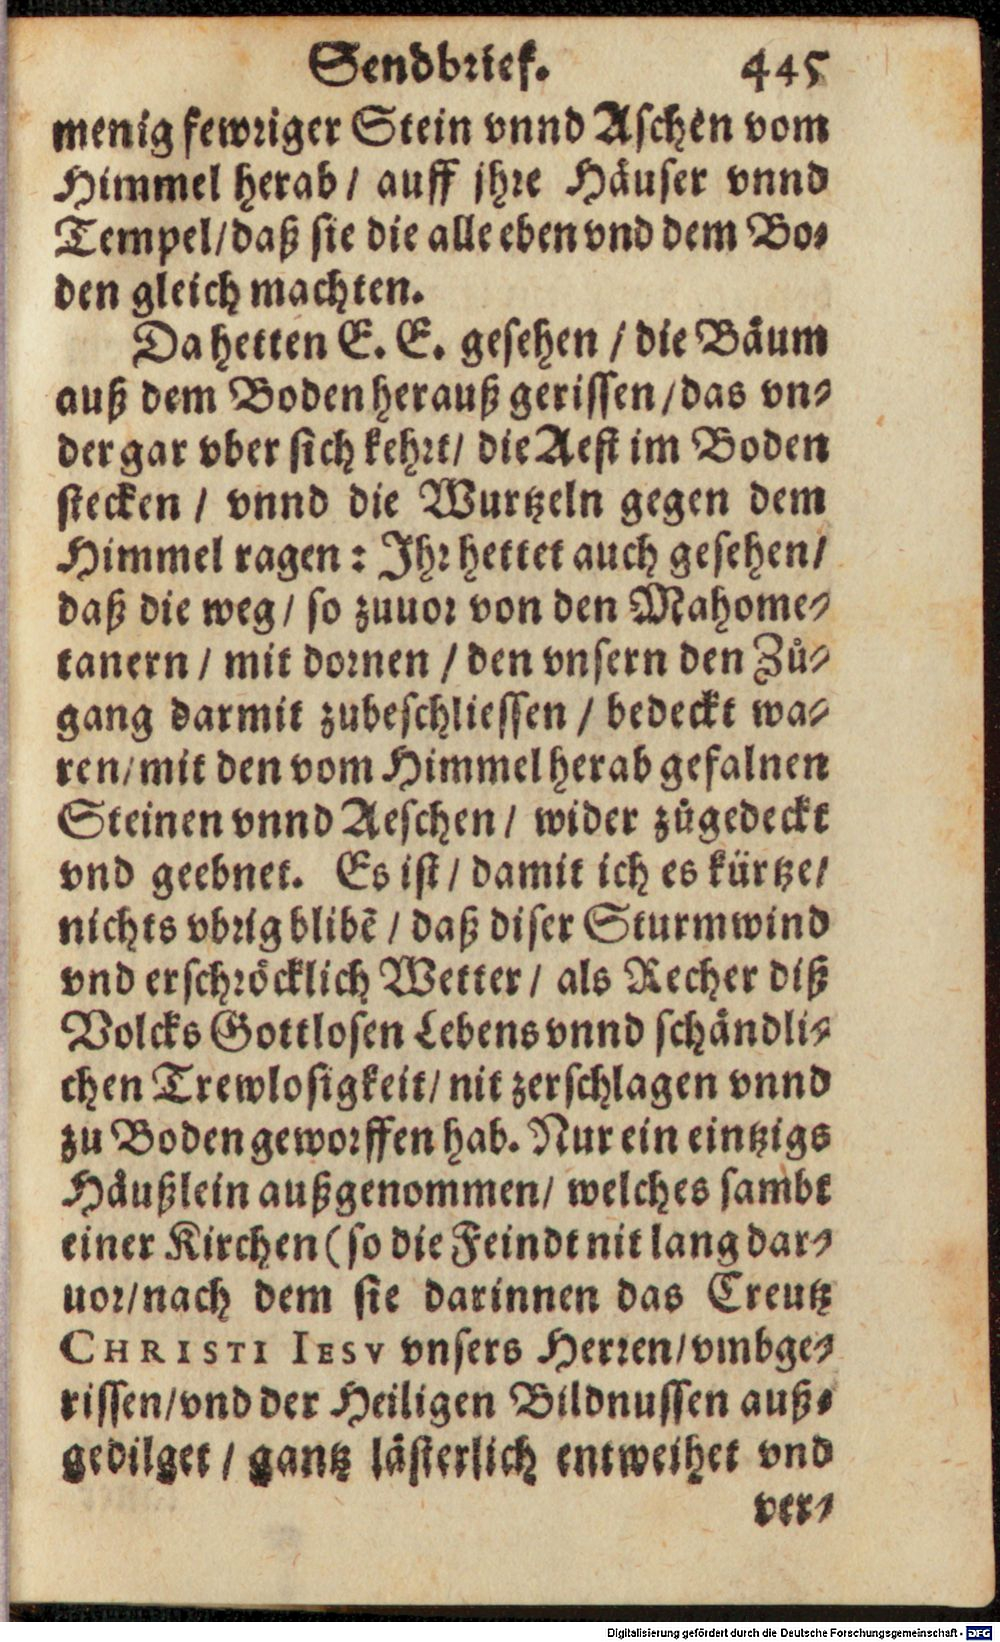 Sendbrief. 445
menig fewriger Stein vnnd Aschen vom
Himmel herab / auff jhre Häuser vnnd
Tempel / daß sie die alle eben vnd dem Bo-
den gleich machten.
Da hetten E. E. gesehen / die Bäum
auß dem Boden herauß gerissen / das vn-
der gar vber sich kehrt / die Aest im Boden
stecken / vnnd die Wurtzeln gegen dem
Himmel ragen : Jhr hettet auch gesehen /
daß die weg / so zuuor von den Mahome-
tanern / mit dornen / den vnsern den Zů-
gang darmit zubeschliessen / bedeckt wa-
ren / mit den vom Himmel herab gefalnen
Steinen vnnd Aeschen / wider zůgedeckt
vnd geebnet. Es ist / damit ich es kürtze /
nichts vbrig blibē / daß diser Sturmwind
vnd erschröcklich Wetter / als Recher diß
Volcks Gottlosen Lebens vnnd schändli-
chen Trewlosigkeit / nit zerschlagen vnnd
zu Boden geworffen hab. Nur ein eintzigs
Häußlein außgenommen / welches sambt
einer Kirchen (so die Feindt nit lang dar-
uor / nach dem sie darinnen das Creutz
CHRISTI IESV vnsers Herren / vmbge-
rissen / vnd der Heiligen Bildnussen auß-
gedilget / gantz lästerlich entweihet vnd
ver-
Digitalisierung gefördert durch die Deutsche Forschungsgemeinschaft - DFG